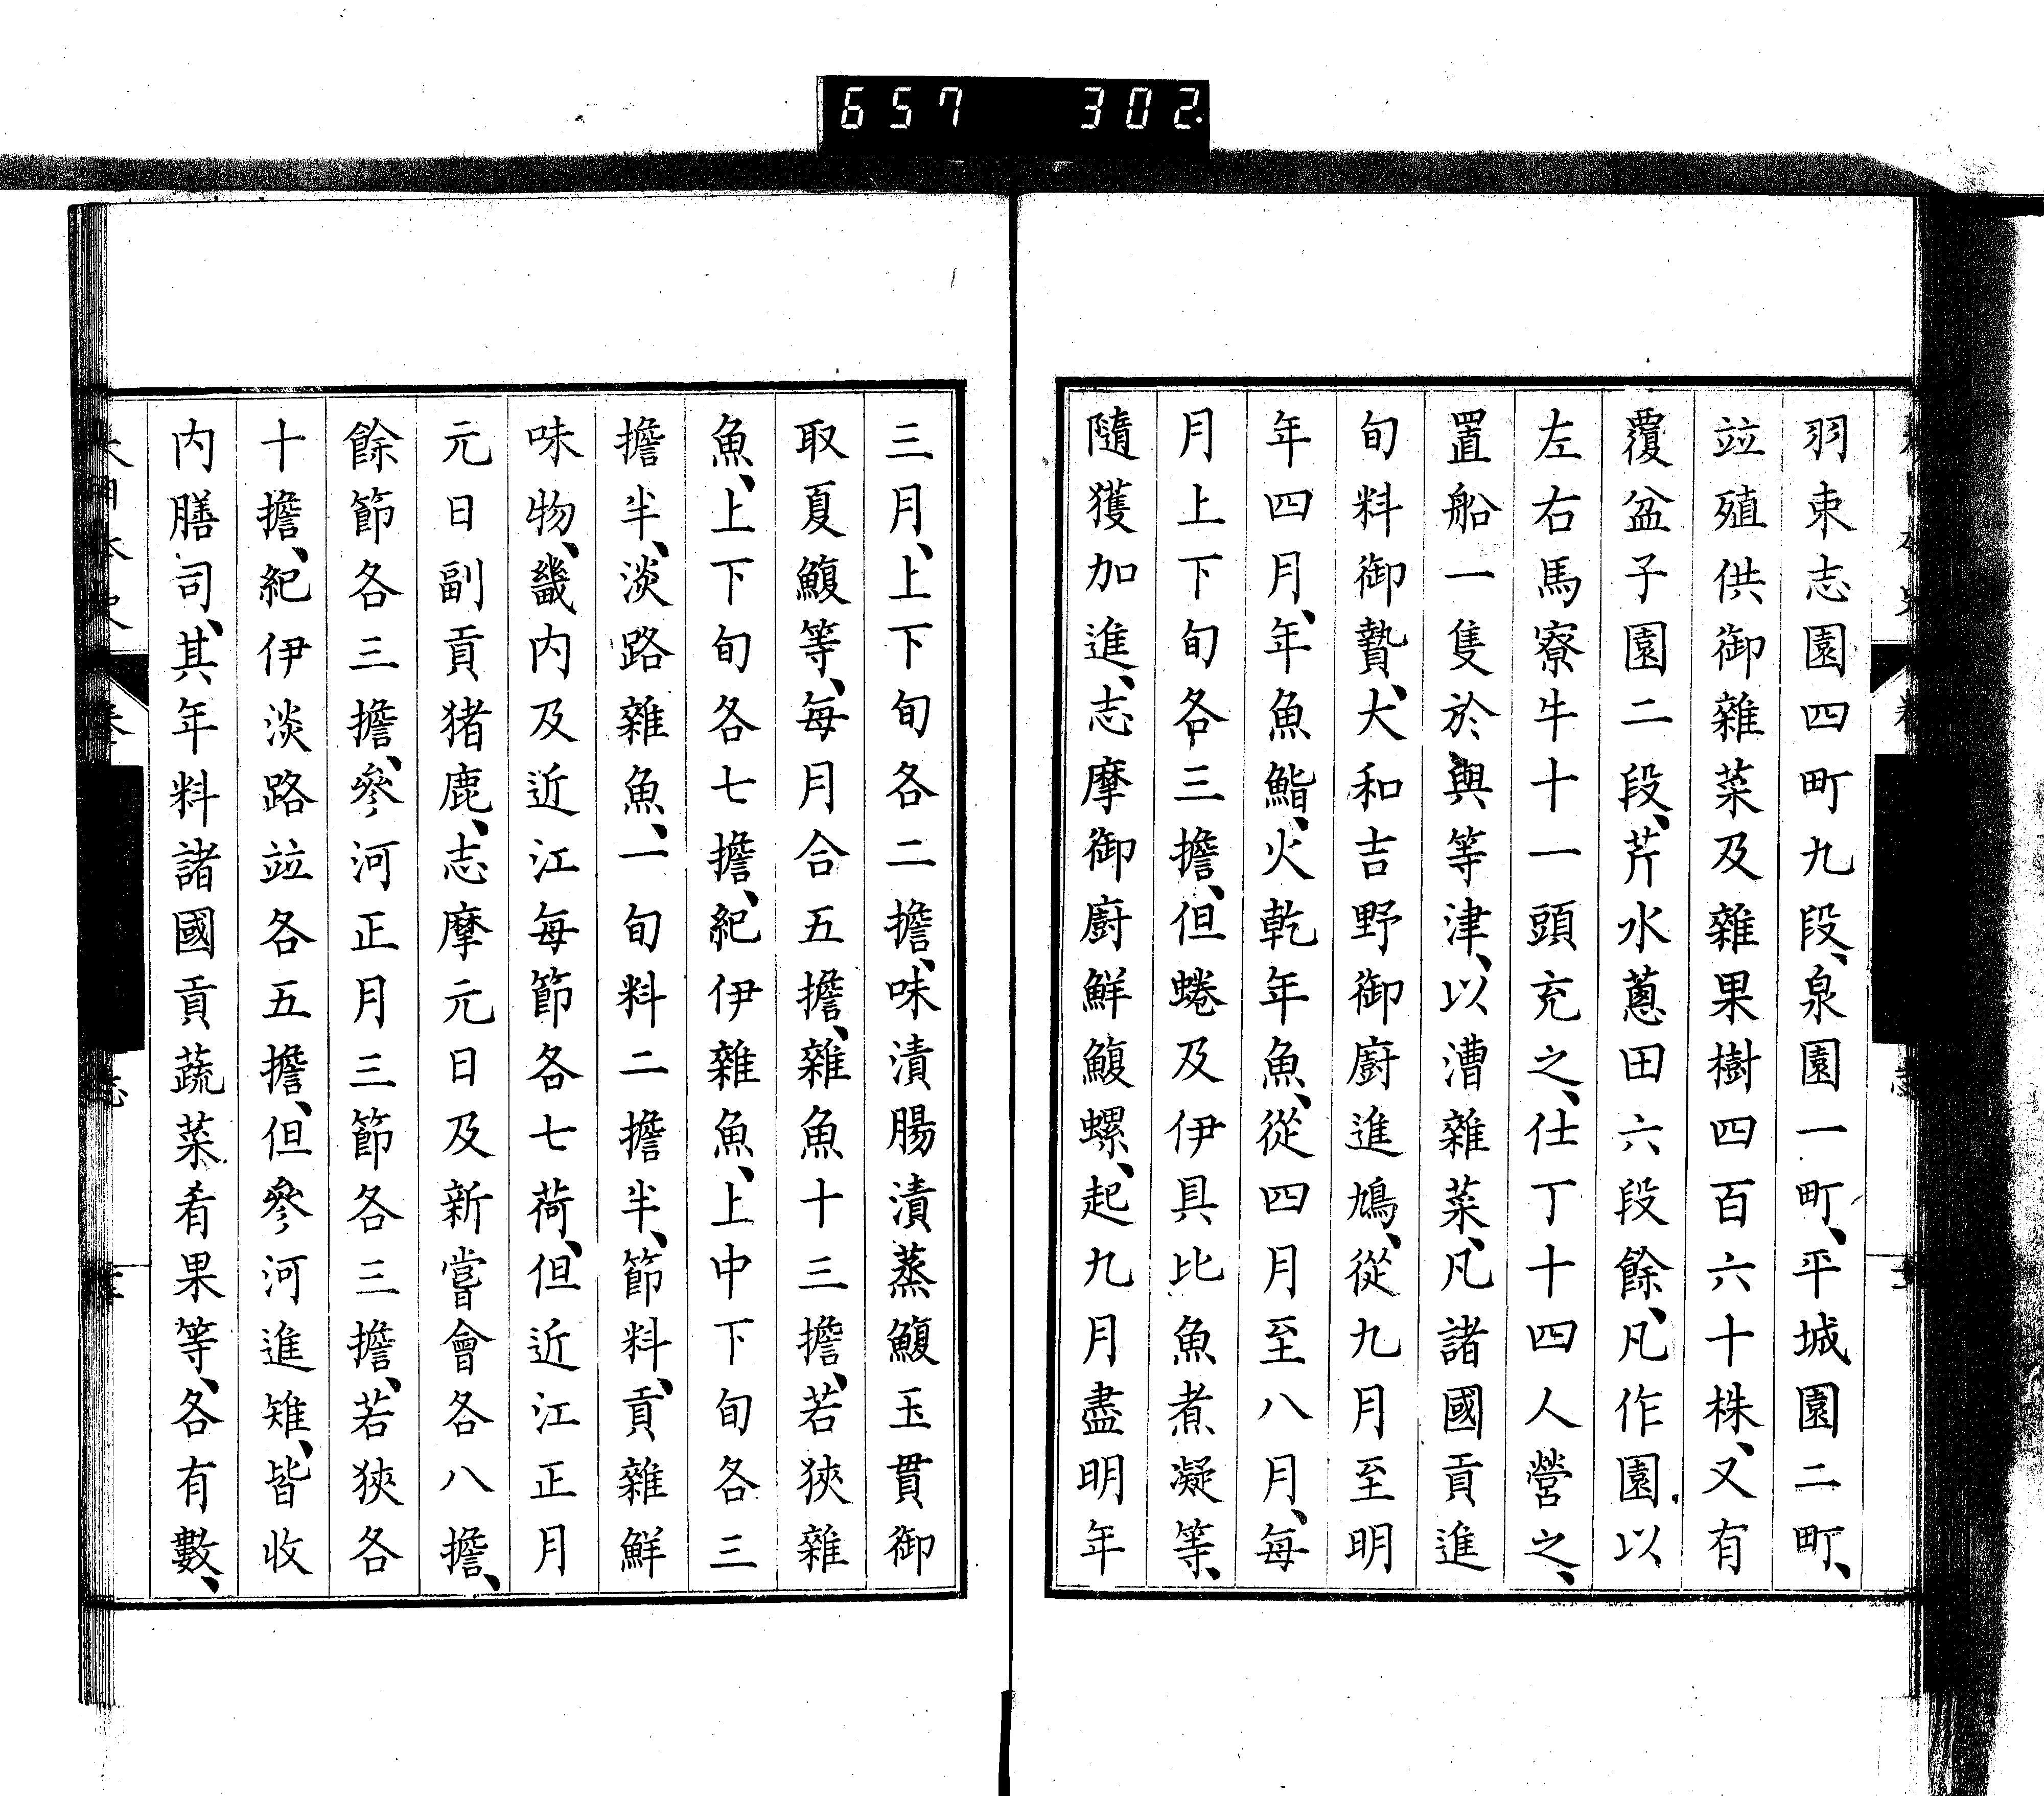 657 302
羽束志園四町九段、泉園一町、平城園二町、
竝殖供御雜菜及雜果樹四百六十株、又有
覆盆子園二段、芹水蔥田六段餘、凡作園以
左右馬寮牛十一頭充之、仕丁十四人營之、
置船一隻於與等津、以漕雜菜、凡諸國貢進
旬料御贄、大和吉野御廚進鳩、從九月至明
年四月、年魚鮨、火乾年魚、從四月至八月、每
月上下旬各三擔、但蜷及伊具比魚煮凝等、
隨獲加進、志摩御廚鮮鰒螺、起九月盡明年
三月、上下旬各二擔、味漬腸漬蒸鰒玉貫御
取夏鰒等、每月合五擔、雜魚十三擔、若狹雜
魚、上下旬各七擔、紀伊雜魚、上中下旬各三
擔半、淡路雜魚、一旬料二擔半、節料、貢雜鮮
味物、畿内及近江每節各七荷、但近江正月
元日副貢猪鹿、志摩元日及新嘗會各八擔、
餘節各三擔、參河正月三節各三擔、若狹各
十擔、紀伊淡路竝各五擔、但參河進雉、皆收
内膳司、其年料諸國貢蔬菜肴果等、各有數、